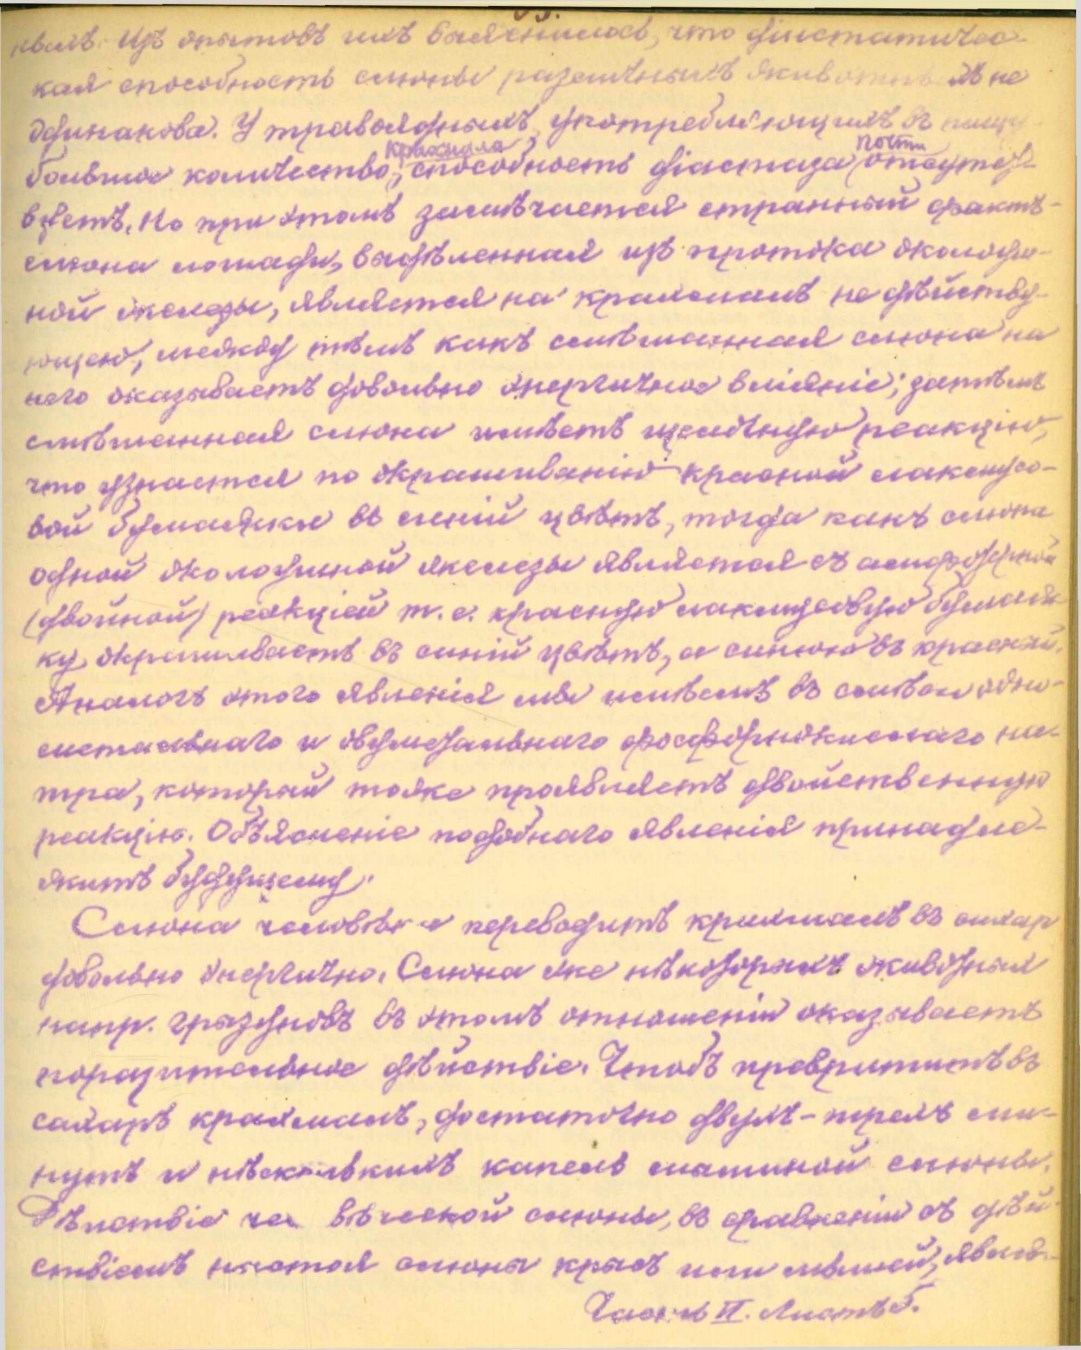 нвалъ. Изъ опытовъ ихъ выяснилось, что діастатичес-
кая способность слюны различныхъ животныхъ не
одинакова. У травоядныхъ, употребляющихъ въ пищу
большое количество крахмала, способность діастаза почти отсутст-
вуетъ. Но при этомъ замѣчается странный фактъ-
слюна лошади, выдѣленная изъ протока околоуш-
ной железы, является на крахмалъ не дѣйству-
ющею, между тѣмъ какъ смѣшанная слюна на
него оказываетъ довольно энергичное вліяніе; затѣмъ
смѣшанная слюна имѣетъ щелочную реакцію,
что узнается по окрашиванію красной лакмусо-
вой бумажки въ синій цвѣтъ, тогда какъ слюна
одной околоушной железы является съ амфотерной
(двойной) реакціей т. е. красную лакмусовую бумаж
ку окрашиваетъ въ синій цвѣтъ, а синюю въ красный.
Аналогъ этого явленія мы имѣемъ въ смѣси одно-
металльнаго и двуметальнаго фосфорнокислаго на-
тра, который тоже проявляетъ двойственную
реакцію. Объясненіе подобнаго явленія принадле-
житъ будущему.
Слюна человѣка переводитъ крахмалъ въ сахар
довольно энергично. Слюна же нѣкоторыхъ животныхъ
напр. грызуновъ въ этомъ отношеніи оказываетъ
поразительное дѣйствіе. Чтобъ превратить въ
сахаръ крахмалъ, достаточно двухъ-трехъ ми-
нутъ и нѣсколькихъ капель мышиной слюны.
Дѣйствіе человѣческой слюны, въ сравненіи съ дѣй-
ствіемъ настоя слюны крысъ или мышей, явля-
Часть II. Листъ 5.